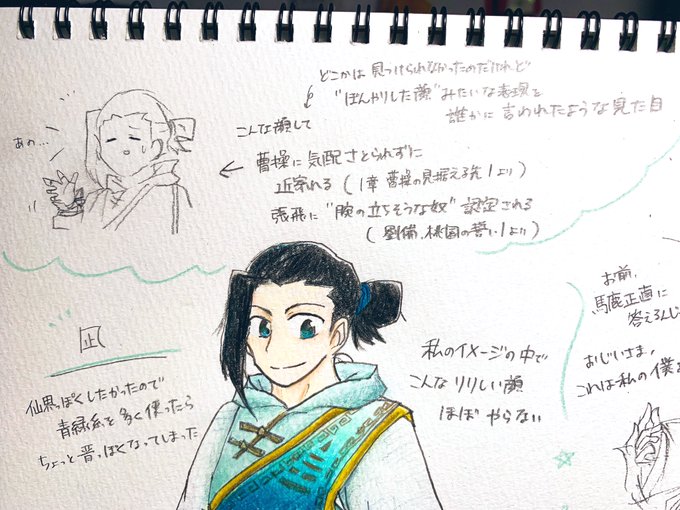 どこかは見つけられなかったのだけれど
"ぼんやりした顔"みたいな表現を
誰かに言われたような見た目
あの…
こんな顔して
曹操に気配さとられずに
近寄れる(1章 曹操の見据える先1より)
張飛に"腕の立ちそうな奴"認定される
(劉備、桃園の誓い1より)
凪
仙界っぽくしたかったので
青緑系を多く使ったら
ちょっと晋っぽくなってしまった
私のイメージの中で
こんなりりしい顔
ほぼやらない
お前、
馬鹿正直に
答えるんじ
おじいさま、
これは私の僕